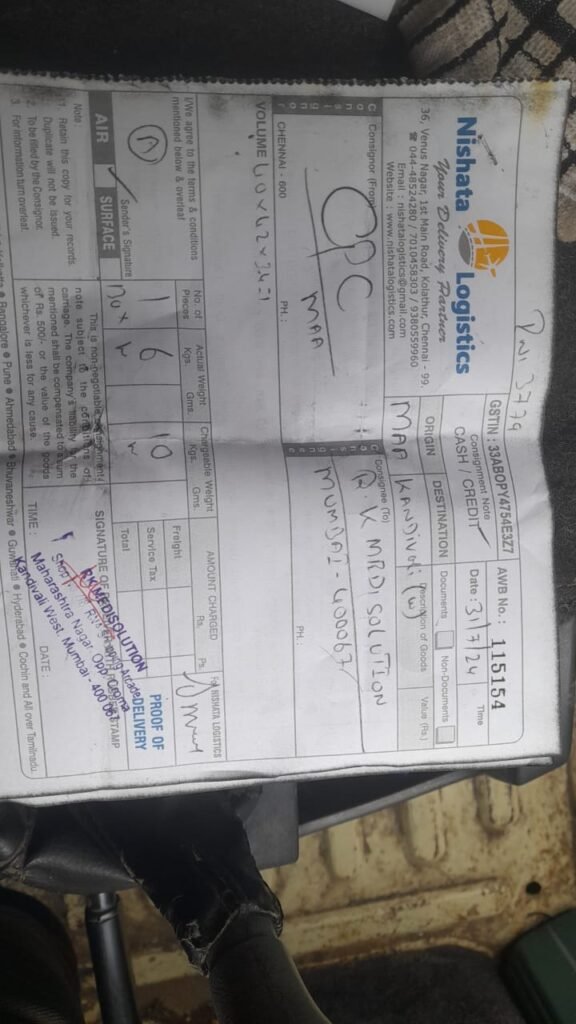 Nishata Logistics
Your Delivery Partner
36, Venus Nagar, 1st Main Road, Kolathur, Chennai - 99.
☎ 044-48524280 / 7010458303 / 9380559960
Email : nishatalogistics@gmail.com
Website : www.nishatalogistics.com
3779
GSTIN : 33ABOPY4754E3Z7
Consignment Note
CASH / CREDIT
AWB No. : 115154
Date : 31/7/24
Time
ORIGIN
MAA
DESTINATION
KANDIVALI (W)
Documents
Non-Documents
Description of Goods
Value (Rs.)
Consignor (From)
CPC
MAA
CHENNAI - 600
PH. :
Consignee (To)
R.K MEDISOLUTION
MUMBAI - 400067
PH :
VOLUME 40×42×34-1
I/We agree to the terms & conditions
mentioned below & overleaf
Sender's Signature
AIR
SURFACE
No. of Pieces
1
Box
Actual Weight
Kgs.
Gms.
6
Chargeable Weight
Kgs.
Gms.
10
AMOUNT CHARGED
Rs.
Ps.
Freight
Service Tax
Total
For NISHATA LOGISTICS
PROOF OF
DELIVERY
Note :
1. Retain this copy for your records
Duplicate will not be issued.
2. To be filled by the Consignor.
3. For information turn overleaf.
This is non-negotiable
note subject to the conditions of
carriage. The company's liability
mentioned shall be compensated to a sum
of Rs. 500/- or the value of the goods
whichever is less for any cause.
SIGNATURE OF
STAMP
TIME :
DATE :
RK MEDISOLUTION
Maharashtra Nagar, Opp.
Kandivali West, Mumbai - 400
Bangalore ● Pune ● Ahmedabad ● Bhuvaneshwar ● Guwahati ● Hyderabad ● Cochin and All over Tamilnadu